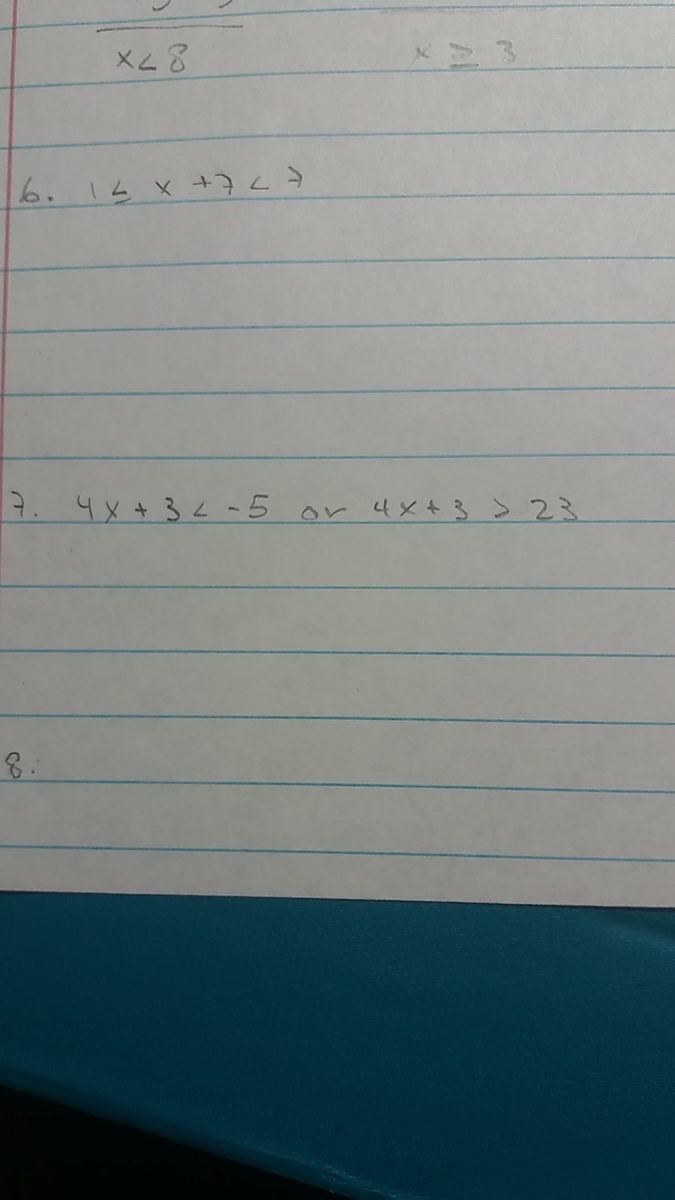 x<8 x ≥ 3
6. 1 ≤ x +7 < 7
7. 4x + 3 < -5 or 4x+3 > 23
8.